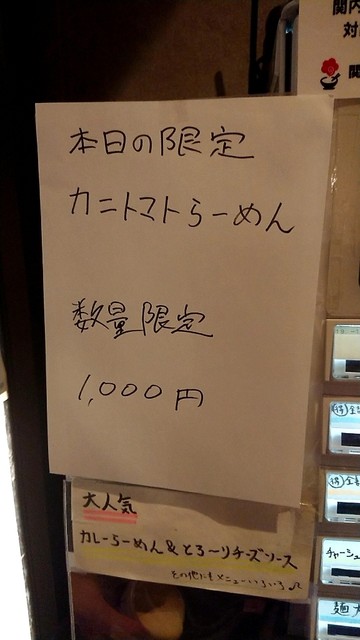 本日の限定
カニトマトらーめん
数量限定
1,000円
大人気
カレーらーめん&とろ〜りチーズソース
その他にもメニューいろいろ♪
関内
対
チャーシュ
麺大